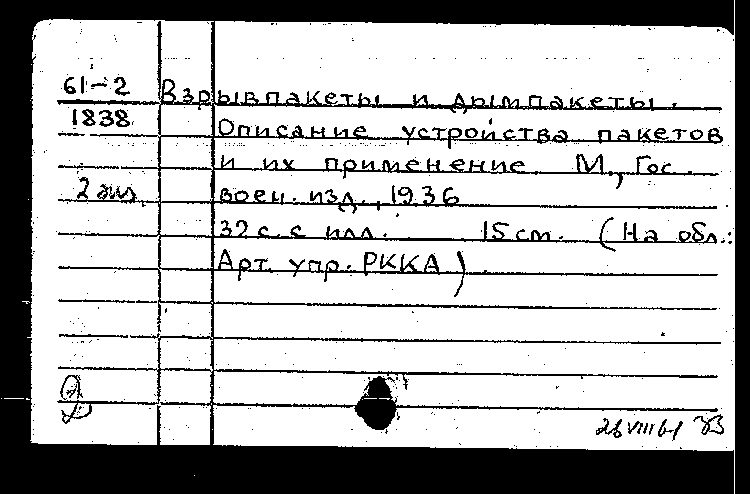 61-2 Взрывпакеты и дымпакеты.
1838 Описание устройства пакетов
и их применение. М., Гос.
2 экз. воен. изд., 1936
32 с. с илл. 15 см. (На обл.:
Арт. упр. РККА)
26 VIII 61